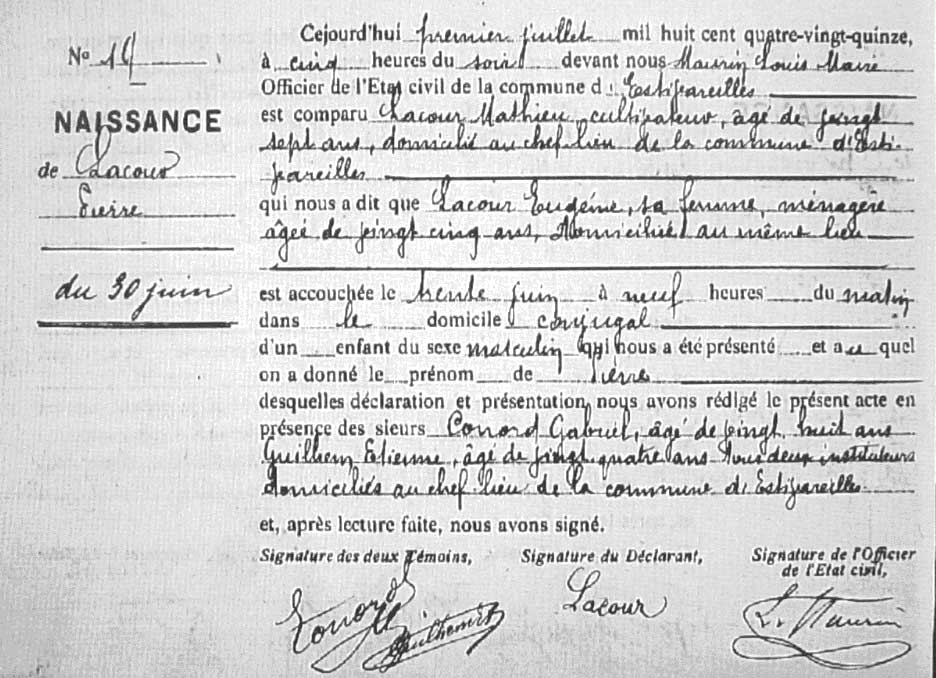 No 14
NAISSANCE
de Lacour
Pierre
du 30 juin
Cejourd'hui premier juillet mil huit cent quatre-vingt-quinze,
à cinq heures du soir devant nous Maurin Louis Maire
Officier de l'Etat civil de la commune d' Estipareilles
est comparu Lacour Mathieu, cultivateur, âgé de vingt
sept ans, domicilié au chef lieu de la commune d'Esti-
pareilles
qui nous a dit que Lacour Eugénie, sa femme, ménagère
âgée de vingt cinq ans, domiciliée au même lieu
est accouchée le trente juin à neuf heures du matin
dans le domicile conjugal
d'un enfant du sexe masculin qui nous a été présenté et au quel
on a donné le prénom de Pierre
desquelles déclaration et présentation nous avons rédigé le présent acte en
présence des sieurs Conord Gabriel, âgé de vingt huit ans
Guilhem Etienne, âgé de vingt quatre ans tous deux instituteurs
domiciliés au chef lieu de la commune d'Estipareilles
et, après lecture faite, nous avons signé.
Signature des deux Témoins, Signature du Déclarant, Signature de l'Officier
de l'Etat civil,
Conord Lacour L. Maurin